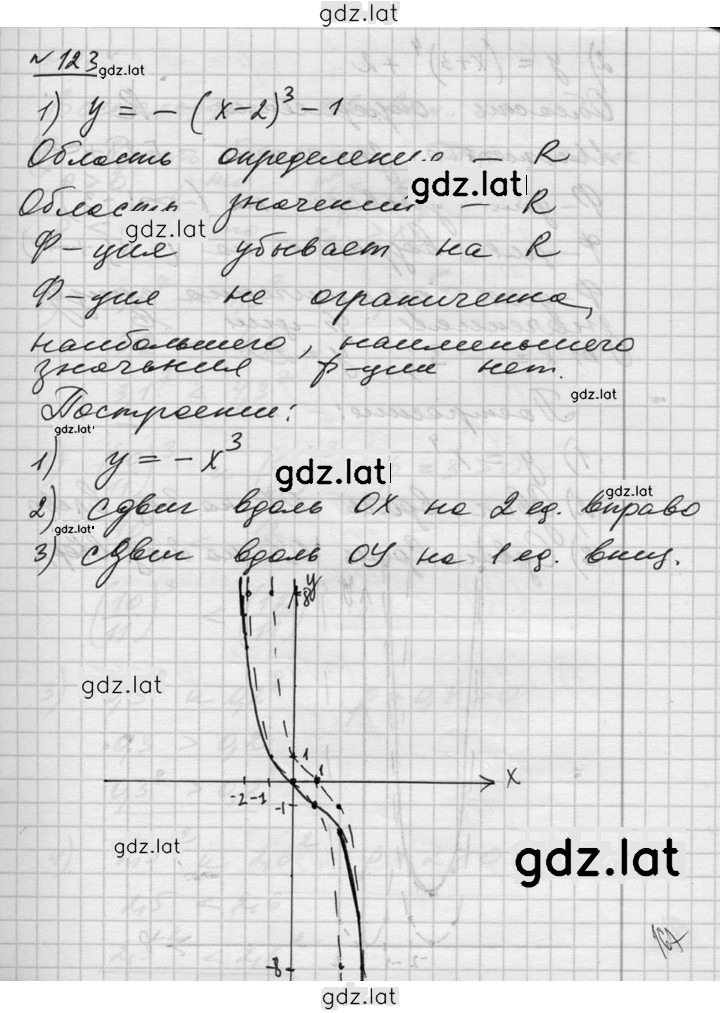 gdz.lat
№ 123
gdz.lat
1) y = - (x-2)³ - 1
Область определению — R
gdz.lat
Область значений — R
gdz.lat
Ф-ция убывает на R
Ф-ция не ограниченна,
наибольшего, наименьшего
значения ф-ции нет.
gdz.lat
Построении:
gdz.lat
1) y = - x³
gdz.lat
gdz.lat
2) сдвиг вдоль OX на 2 ед. вправо
gdz.lat
3) сдвиг вдоль OY на 1 ед. вниз.
y
8
gdz.lat
1
1
x
-2 -1
-1
gdz.lat
gdz.lat
167
-8
gdz.lat